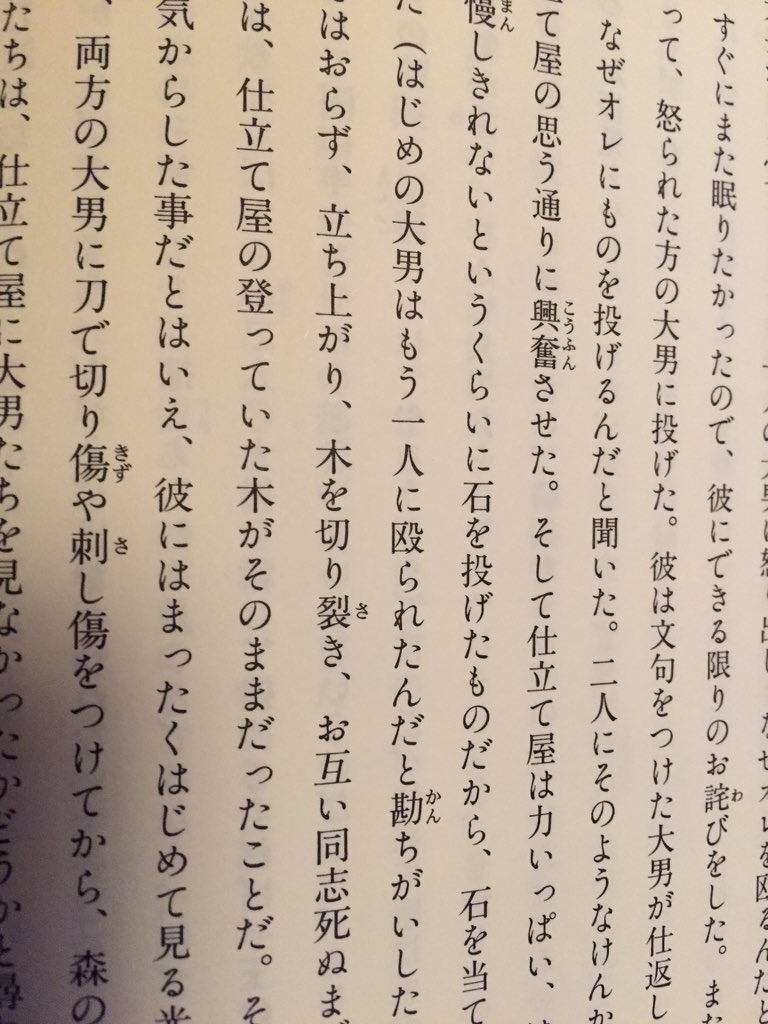 すぐにまた眠りたかったので、彼にできる限りのお詫びをした。また
って、怒られた方の大男に投げた。彼は文句をつけた大男が仕返し
なぜオレにものを投げるんだと聞いた。二人にそのようなけんか
て屋の思う通りに興奮させた。そして仕立て屋は力いっぱい、
慢しきれないというくらいに石を投げたものだから、石を当て
た(はじめの大男はもう一人に殴られたんだと勘ちがいした
はおらず、立ち上がり、木を切り裂き、お互い同志死ぬまで
は、仕立て屋の登っていた木がそのままだったことだ。そ
気からした事だとはいえ、彼にはまったくはじめて見る光
、両方の大男に刀で切り傷や刺し傷をつけてから、森の
たちは、仕立て屋に大男たちを見なかったかどうかと尋